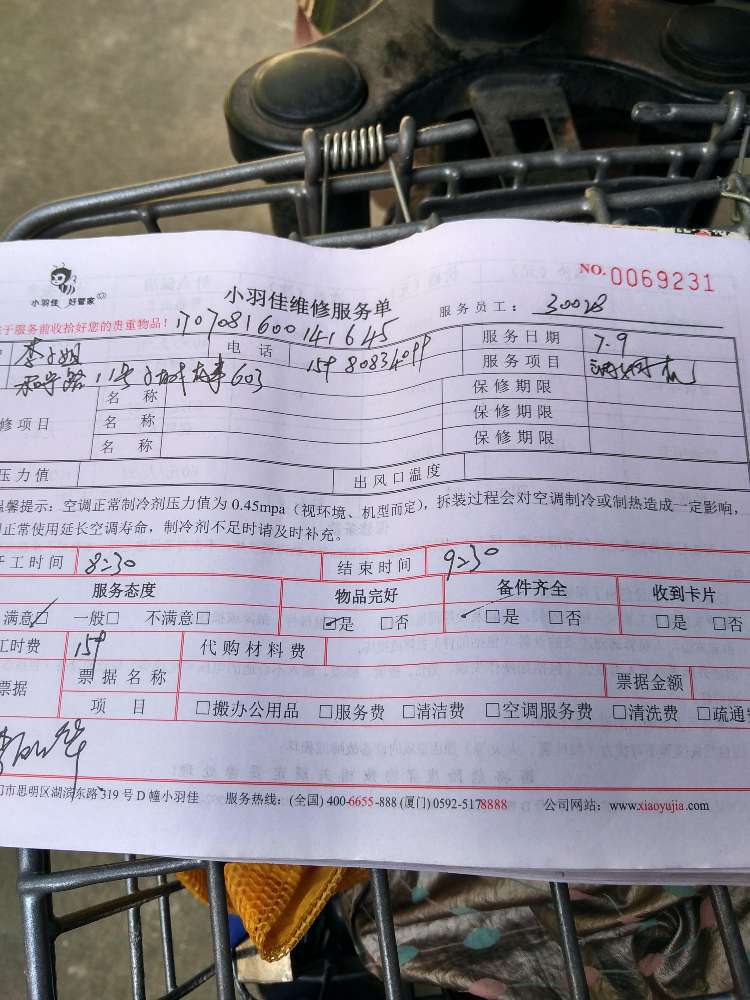 小羽佳 好管家
NO.0069231
小羽佳维修服务单
服务员工: 30028
于服务前收拾好您的贵重物品! 170708160014 1645
李小姐 电 话 159 80834099 服务日期 7.9
603 服务项目
修项目 名 称 保修期限
名 称 保修期限
名 称 保修期限
压力值 出风口温度
温馨提示:空调正常制冷剂压力值为 0.45mpa(视环境、机型而定),拆装过程会对空调制冷或制热造成一定影响,
正常使用延长空调寿命,制冷剂不足时请及时补充。
开工时间 8:30 结束时间 9:30
服务态度 物品完好 备件齐全 收到卡片
满意□ 一般□ 不满意□ □是 □否 □是 □否 □是 □否
工时费 159 代购材料费
票据 票据名称 票据金额
项 目 □搬办公用品 □服务费 □清洁费 □空调服务费 □清洗费 □疏通
门市思明区湖滨东路 319 号 D 幢小羽佳 服务热线:(全国) 400-6655-888 (厦门) 0592-5178888 公司网站:www.xiaoyujia.com